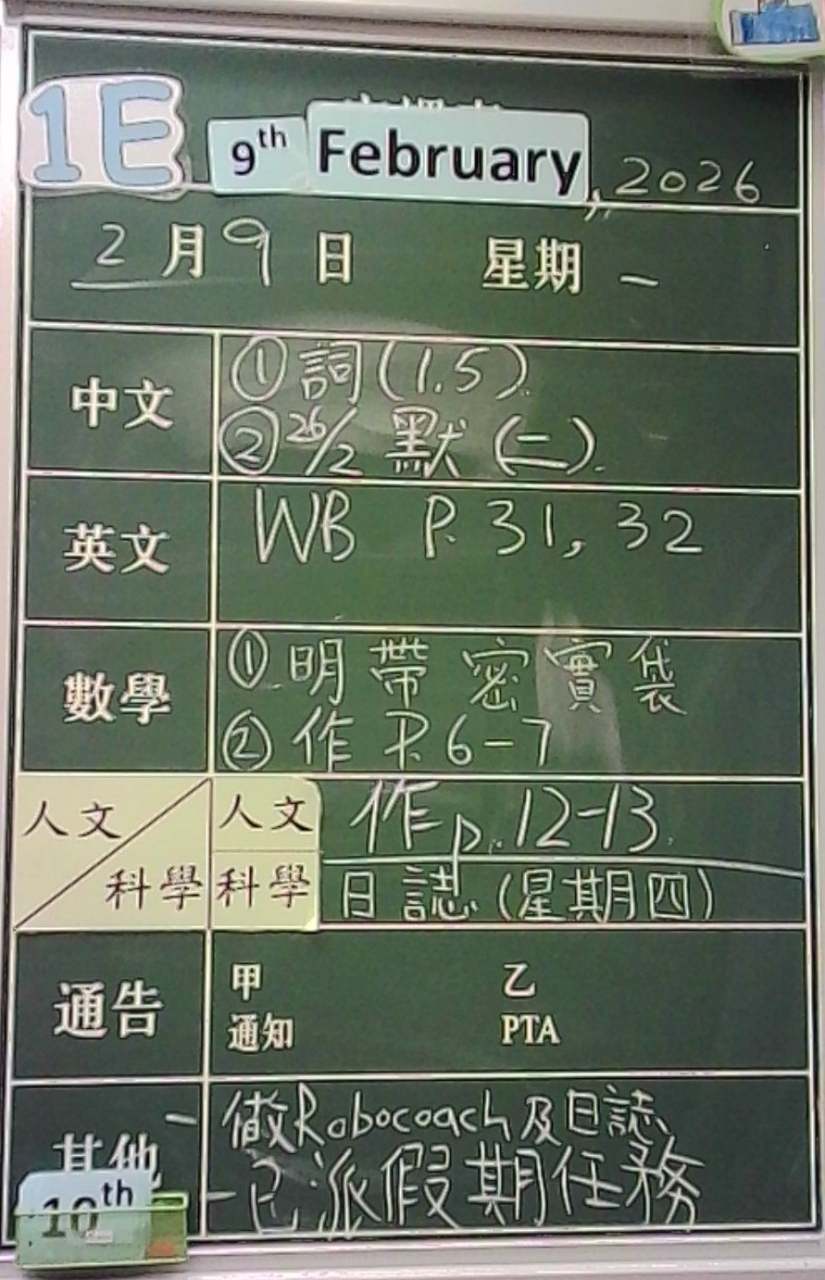 1E
9th February, 2026
2月9日 星期一
中文
①詞(1.5)
②26/2 默(二)
英文
WB P.31, 32
數學
①明帶密實袋
②作 P.6-7
人文
科學
人文 作p.12-13
科學 日誌(星期四)
通告
甲 乙
通知 PTA
其他
- 做Robocoach及日誌
- 已派假期任務
10th